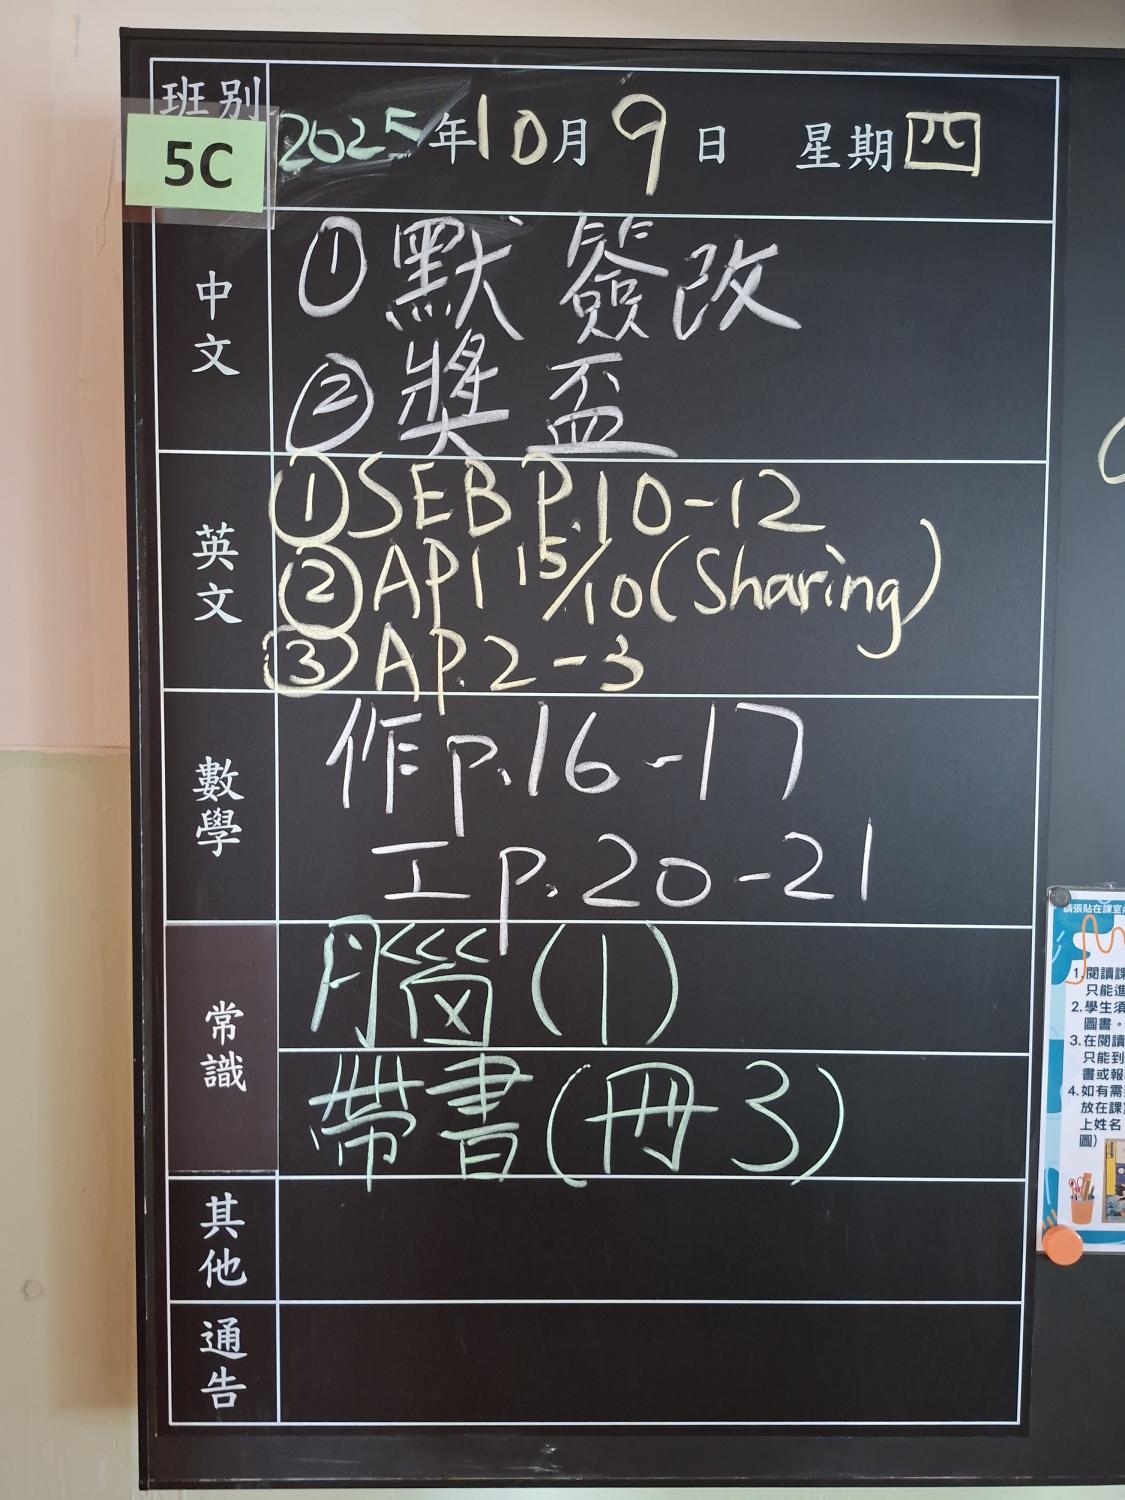 班別
5C
2025年10月9日 星期四
中文
① 默 簽改
② 獎盃
英文
① SEB P.10-12
② AP1 15/10 (Sharing)
③ AP.2-3
數學
作p.16-17
工p.20-21
常識
腦(1)
帶書(冊3)
其他
通告
請張貼在課室
1.閱讀課
只能進
2.學生須
圖書。
3.在閱讀
只能到
書或報
4.如有需
放在課
上姓名
圖)